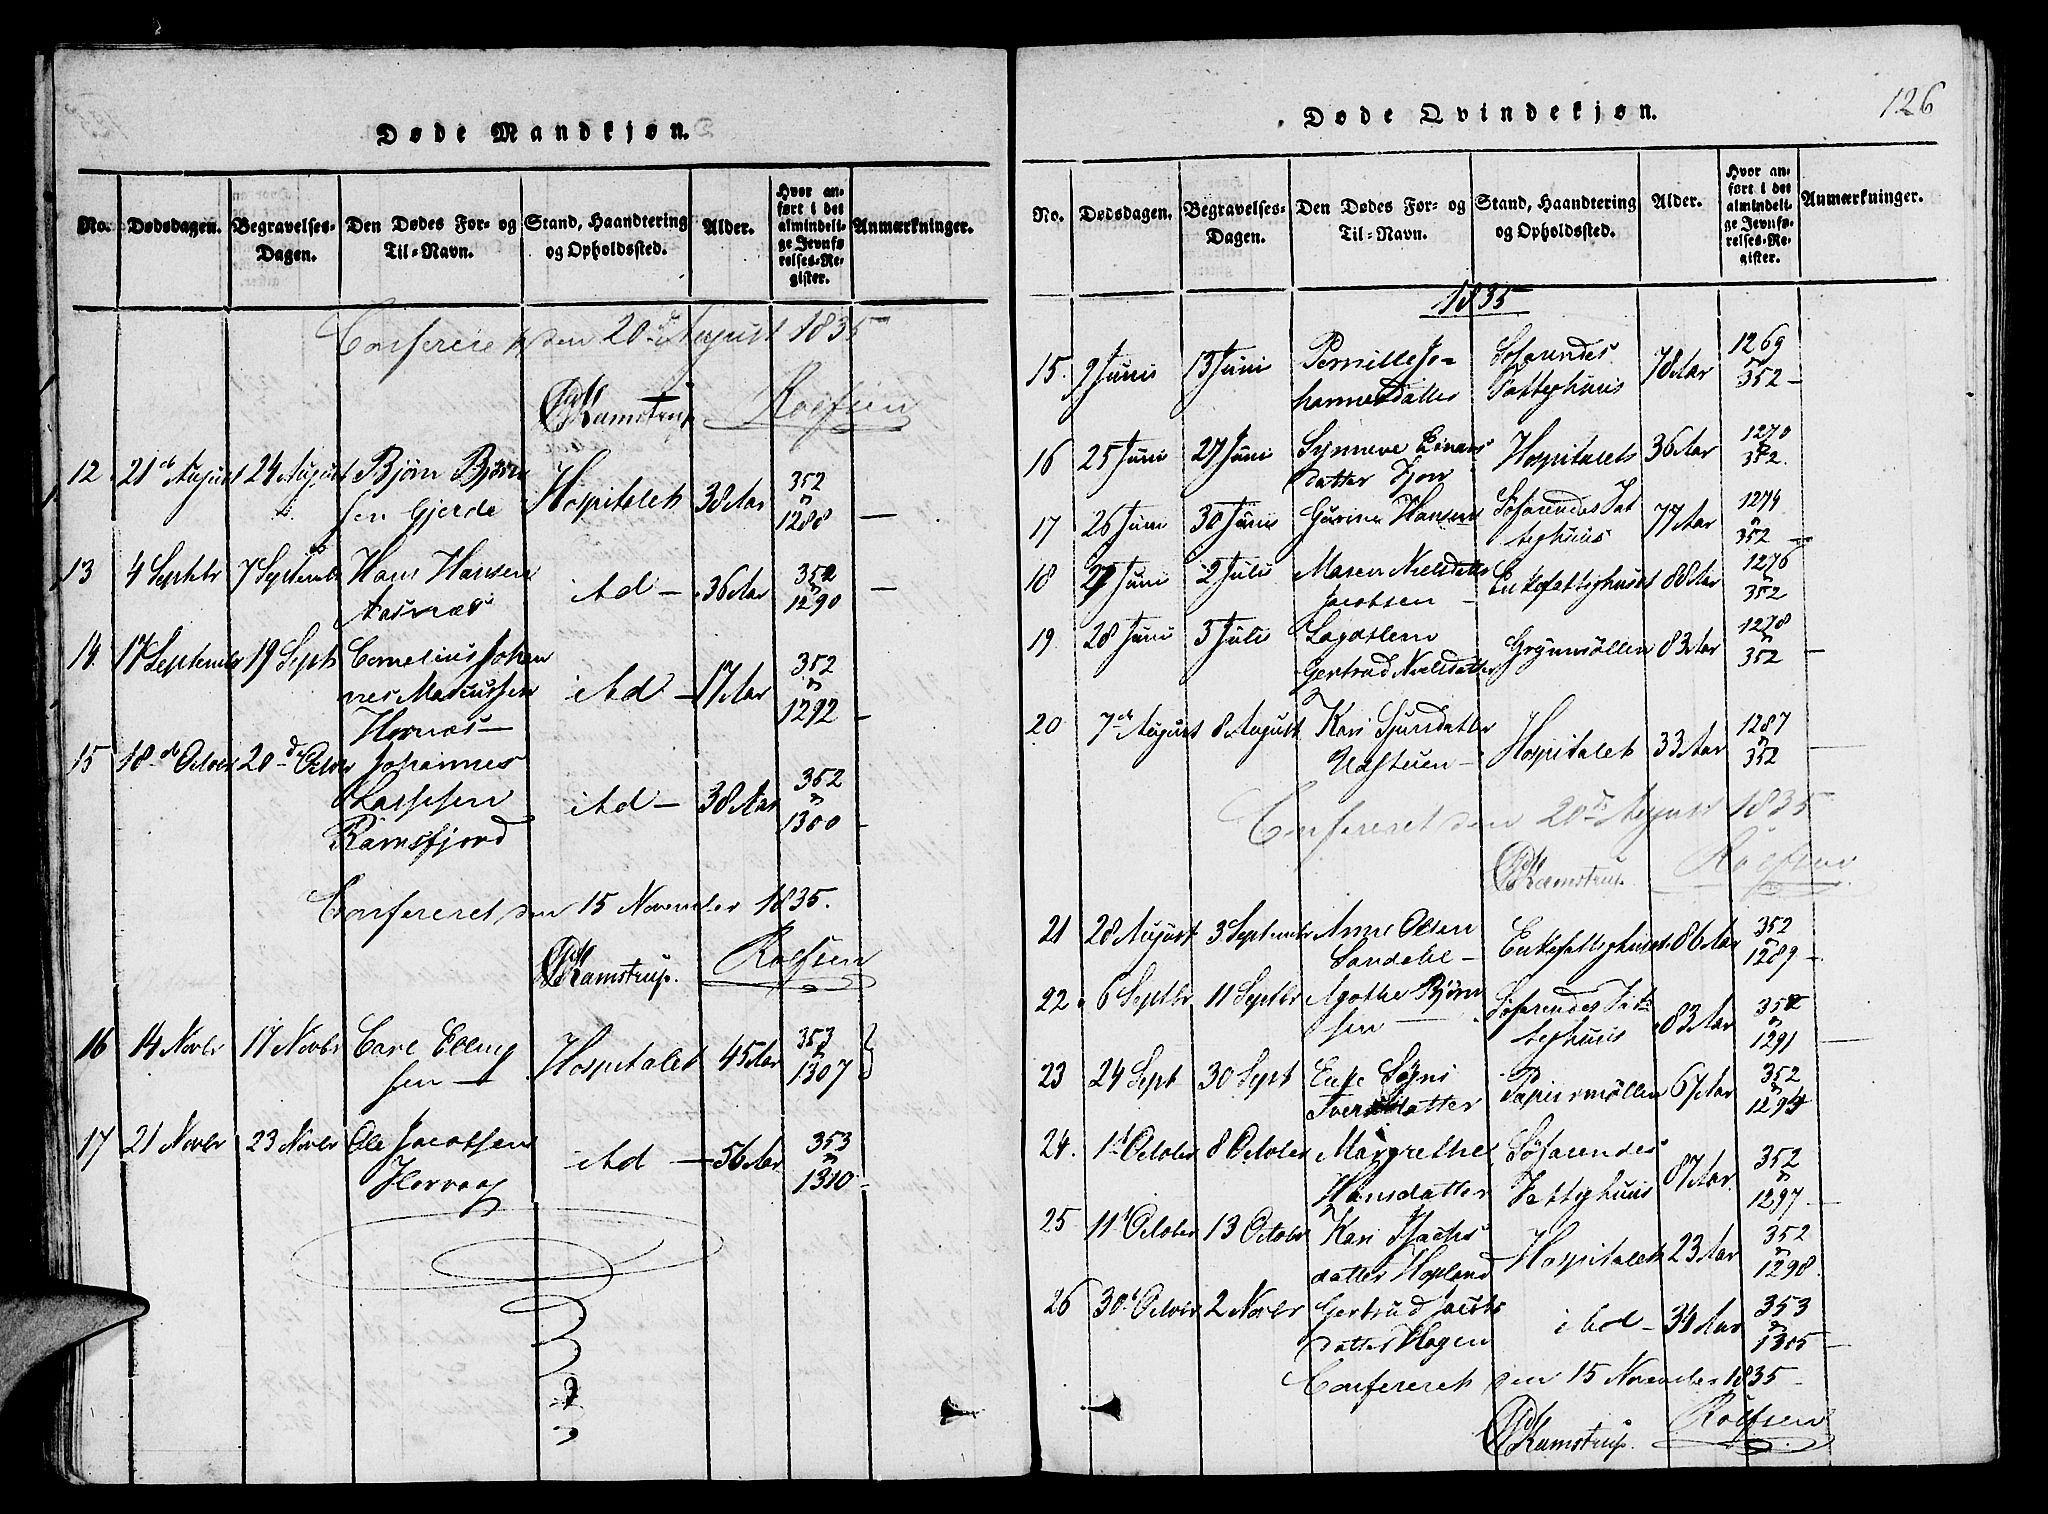 Døde Mandkjøn.
No.
Dødsdagen.
Begravelses-
Dagen.
Den Dødes For- og
Til-Navn.
Stand, Haandtering
og Opholdssted.
Alder.
Hvor an-
ført i det
almindeli-
ge Jevnfø-
relses-Re-
gister.
Anmærkninger.
Confereret den 20de August 1835
Ramstrup Rolfsen
12 21de August 24 August Bjørn Bjørn
sen Gjerde Hospitalet 38 Aar 352
1288 —
13 4 Septbr 7 Septembr Hans Hansen
Aarnæs ibd — 36 Aar 352
1290 —
14. 17 Septembr 19 Septb Cornelius Johan
nes Marcussen
Hornæs — ibd — 17 Aar 352
1292 —
15 18de Octobr 20de Octobr Johannes
Lassesen
Ramsfjord ibd — 38 Aar 352
1300 —
Confereret den 15 November 1835.
Ramstrup. Rolfsen
16 14 Novbr 17 Novbr Carl Elling
sen — Hospitalet 45 Aar 353
1307
17 21 Novbr 23 Novbr Ole Jacobsen
Horvaag ibd — 56 Aar 353
1310 -
126
Døde Qvindekjøn.
No.
Dødsdagen.
Begravelses-
Dagen.
Den Dødes For- og
Til-Navn.
Stand, Haandtering
og Opholdssted.
Alder.
Hvor an-
ført i det
almindeli-
ge Jevnfø-
relses-Re-
gister.
Anmærkninger.
1835
15. 9 Junii 13 Juni Pernille Jo-
hannesdatter Søfarendes
Fattighuus 78 Aar 1269
352 —
16 25 Juni 27 Juni Synneve Einars
datter Hospitalets 36 Aar 1270
352.
17 26 Juni 30 Junii Gurine Hansen Søfarendes Fat
tighuus 77 Aar 1274
352 —
18 27 Juni 2 Julii Maren Nielsdatter
Jacobsen — Enkefattighuset 88 Aar 1276
352
19 28 Juni 3 Julii
Gertrud Nielsdatter Grynmøllen 83 Aar 1278
352 —
20 7de August 8 August Kari Sjursdatter
Udstuen — Hospitalet 33 Aar 1287
352 —
Confereret den 20de August 1835
Ramstrup. Rolfsen
21 28 August 3 Septembr Anne Olsen
Sandvke — Enkefattighuset 86 Aar 352
1289 —
22 6 Septbr 11 Septbr Agothe Bjørn
sen — Søfarendes Fat
tighuus 83 Aar 352
1291 —
23 24 Sept 30 Sept Enke Søgni
Iversdatter Papiirmøllen 67 Aar 352
1294
24. 1de October 8 October Margrethe
Hansdatter Søfarendes
Fattighuus 87 Aar 352
1297. —
25 11de October 13 Octobr Kari Isachs
datter Hopland Hospitalet 23 Aar 352
1298.
26 30de Octobr 2 Novbr Gertrud Jacobs
datter Hagen ibd — 34 Aar 353
1305 —
Confereret den 15 November 1835
Ramstrup. Rolfsen